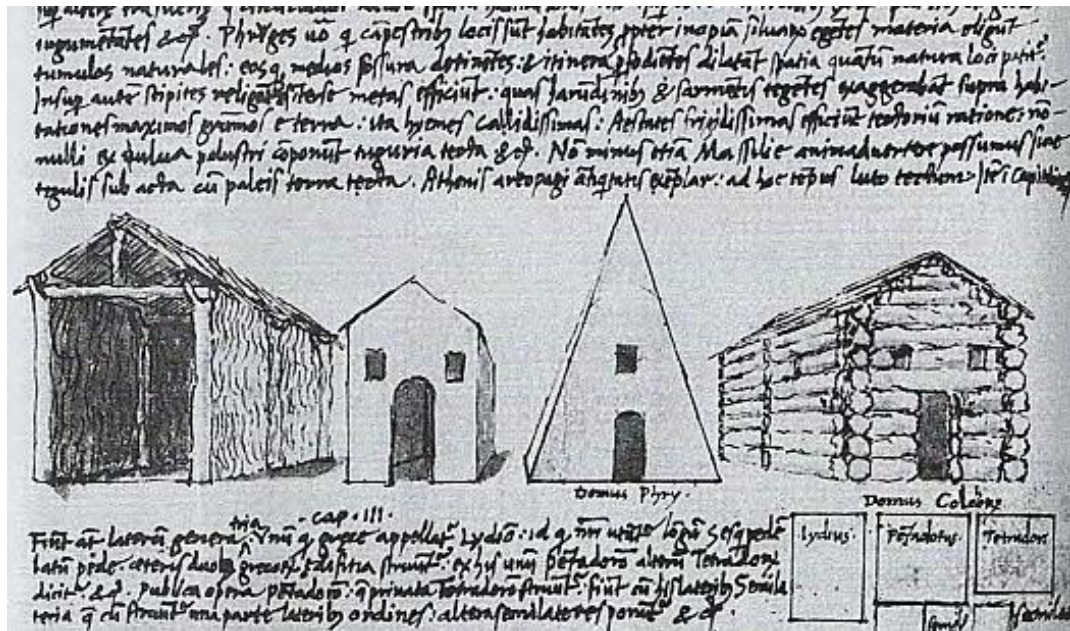 iugumētātes &cᵉ. Phryges uō q̄ cāpestribꝰ locis sūt habitātes ꝓpter inopiā siluaꝝ egētes materia eligūt
tumulos naturales : eosq̨ medios fossura distinētes : & itinera ꝑfodiētes dilatāt spatia quātū natura loci patit᷑.
Insuꝑ autē stipites religātes īterse metas efficiūt : quas harūdinibꝰ & sarmētis tegētes exaggerabāt supra habi-
tationes maximos grumos e terra : ita hyemes calidissimas : Aestates frigidissimas efficiūt tectoriū ratione : nō-
nulli ex ulua palustri cōponūt tuguria tecta &cᵉ. Nō minus etiā Massilie animaduertere possumus sine
tegulis sub acta cū paleis terra tecta. Athenis areopagi ātiq̄tatis exēplar : ad hoc tēpus luto tectum : Itē ī Capitolio
Domus Phry.
Domus Colchoꝝ
cap. III.
Fiūt aūt laterū genera tria Vnū q̄ grece appellat᷑ Lydiō : id q̄ nr̄i utūt᷑ lōgū Sesq̨pede
latū pede. ceteris duobꝰ grecoꝝ edifitia struūt᷑ : ex his unū pētadorō alterū Tetradorō
dicit᷑ : &cᵉ. Publica opera pētadorō : q̄ priuata tetradorō struūt᷑ : fiūt cū his lateribꝰ Semila
teria q̄ cū struūt᷑ una parte lateribꝰ ordines : altera semilateres ponūt᷑ &cᵉ.
Lydius.
Pētadorus.
Tetradors